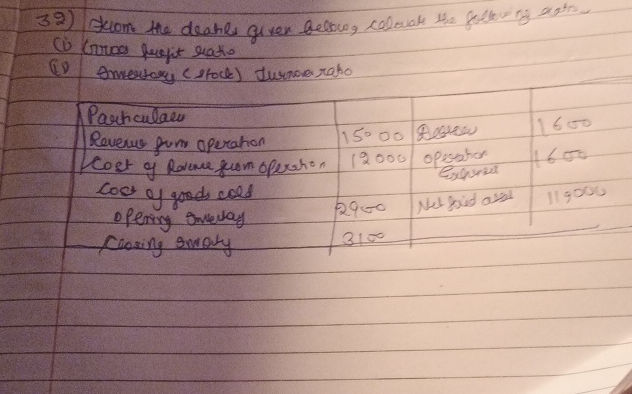 32) From the deatils given below, calculate the following ratio
(i) Gross Profit ratio
(ii) Inventory (stock) turnover ratio
Particulars
Revenue from operation 15000 1600
Cost of Revenue from operation 12000 operation Expenses 1600
Cost of goods cold
opening inventory 2900 Net fixed asset 119000
Closing 3100